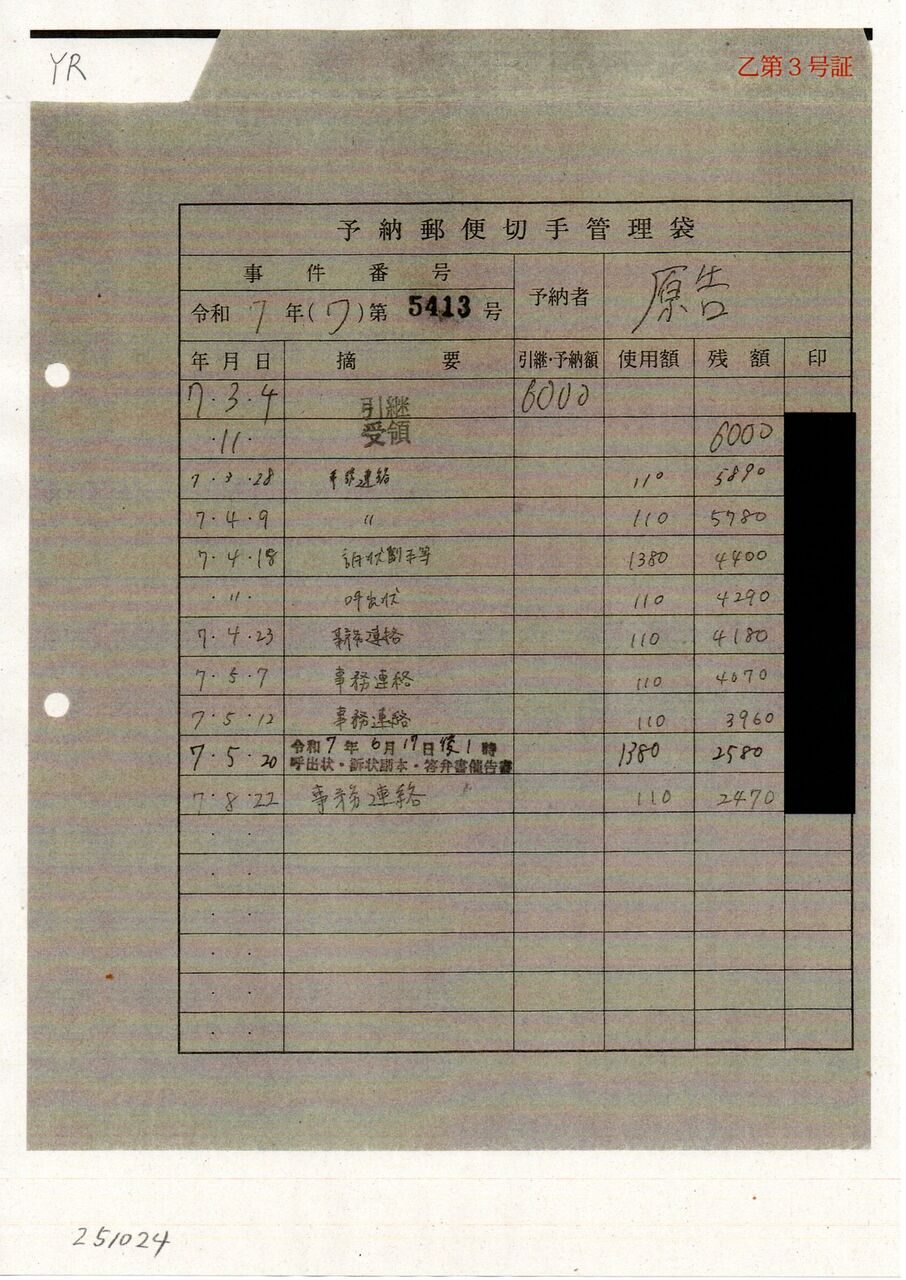 YR
乙第3号証
予納郵便切手管理袋
事件番号 予納者 原告
令和7年(ワ)第5413号
年月日 摘要 引継・予納額 使用額 残額 印
7・3・4 引継 6000
・11・ 受領 6000
7・3・28 事務連絡 110 5890
7・4・9 〃 110 5780
7・4・18 訴状副本等 1380 4400
・〃・ 呼出状 110 4290
7・4・23 事務連絡 110 4180
7・5・7 事務連絡 110 4070
7・5・12 事務連絡 110 3960
7・5・20 令和7年6月17日後1時 1380 2580
呼出状・訴状副本・答弁書催告書
7・8・22 事務連絡 110 2470
251024